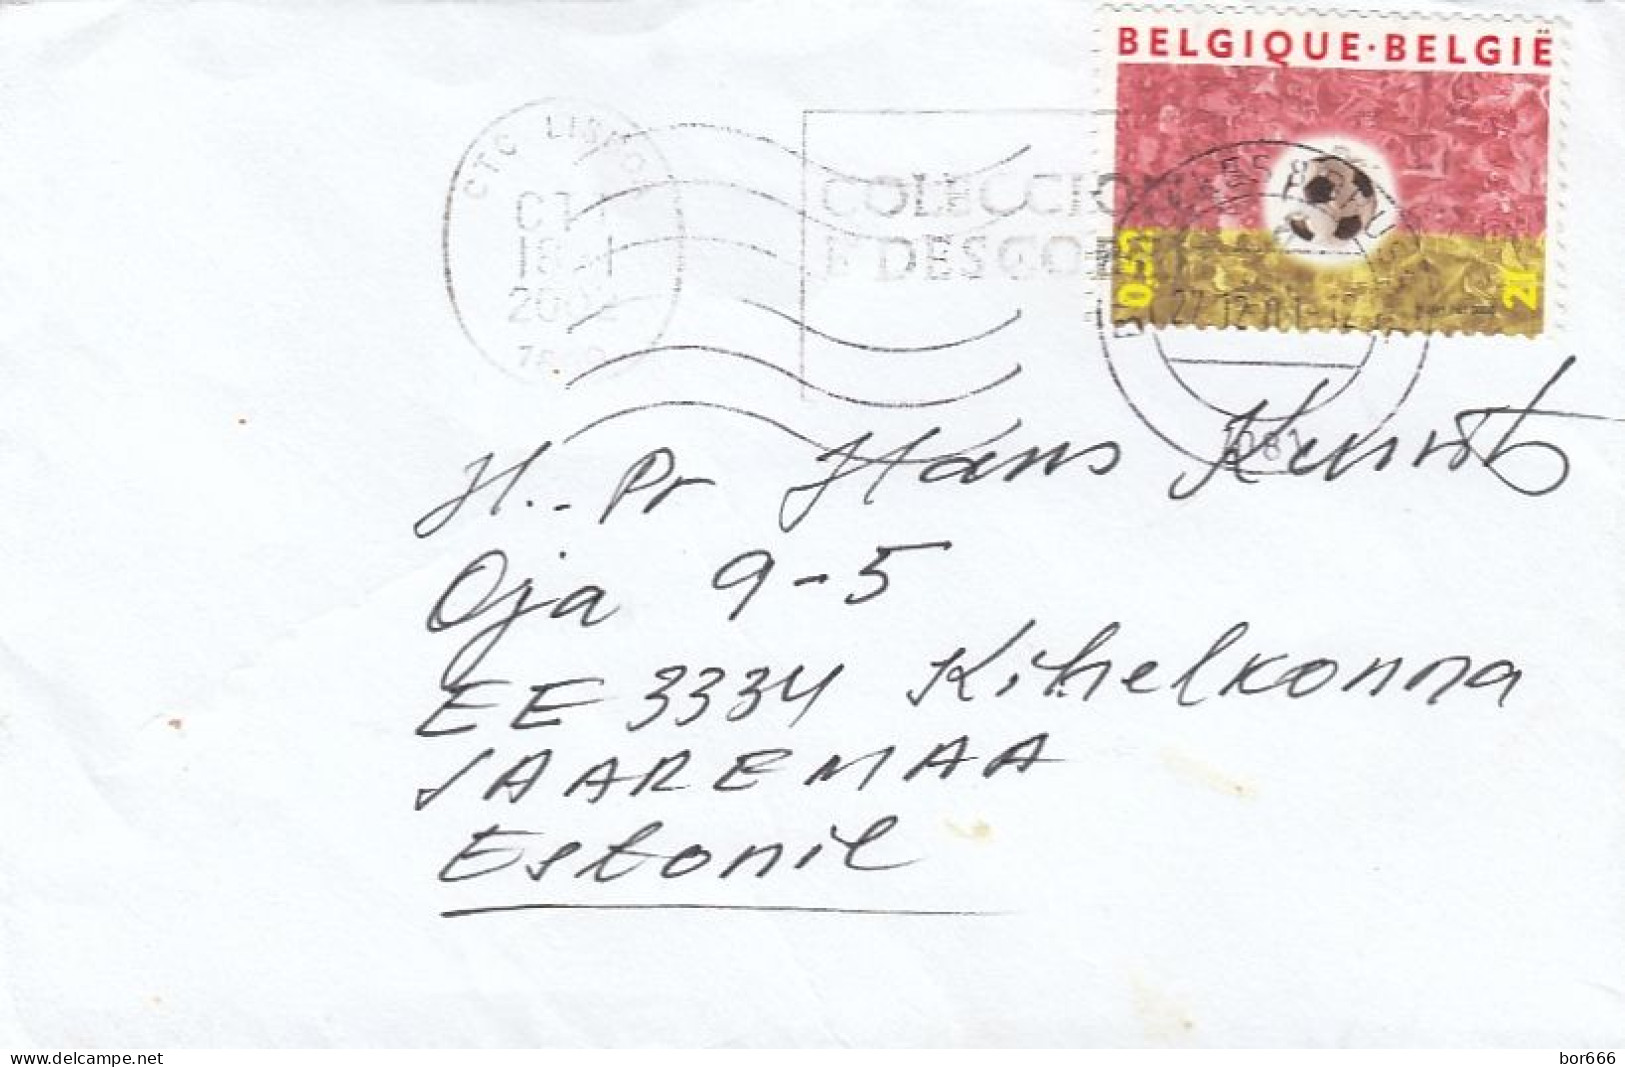 BELGIQUE·BELGIË
0.52
21
CTC LIS
CTT
2002
COLECCION
E DESCO
27-12-01-12
H.. Pr Hans
Oja 9-5
EE 3334 Kihelkonna
SAAREMAA
Estonie
www.delcampe.net
bor666